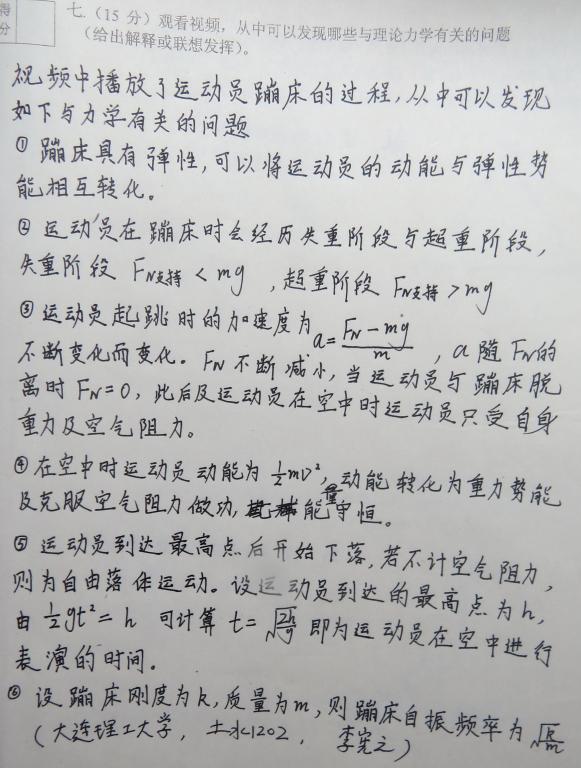 得
分
七.(15 分)观看视频,从中可以发现哪些与理论力学有关的问题
(给出解释或联想发挥)。
视频中播放了运动员蹦床的过程,从中可以发现
如下与力学有关的问题
① 蹦床具有弹性,可以将运动员的动能与弹性势
能相互转化。
② 运动员在蹦床时会经历失重阶段与超重阶段,
失重阶段 FN支持 < mg ,超重阶段 FN支持 > mg
③ 运动员起跳时的加速度为 a = (FN - mg)/m , a 随 FN的
不断变化而变化。FN 不断减小,当运动员与蹦床脱
离时 FN = 0, 此后及运动员在空中时运动员只受自身
重力及空气阻力。
④ 在空中时运动员动能为 ½mv², 动能转化为重力势能
及克服空气阻力做功, 能量守恒。
⑤ 运动员到达最高点后开始下落,若不计空气阻力,
则为自由落体运动。设运动员到达的最高点为 h,
由 ½gt² = h 可计算 t = √(2h/g) 即为运动员在空中进行
表演的时间。
⑥ 设蹦床刚度为 k, 质量为 m, 则蹦床自振频率为 √(k/m)
(大连理工大学, 土水1202, 李宪之)